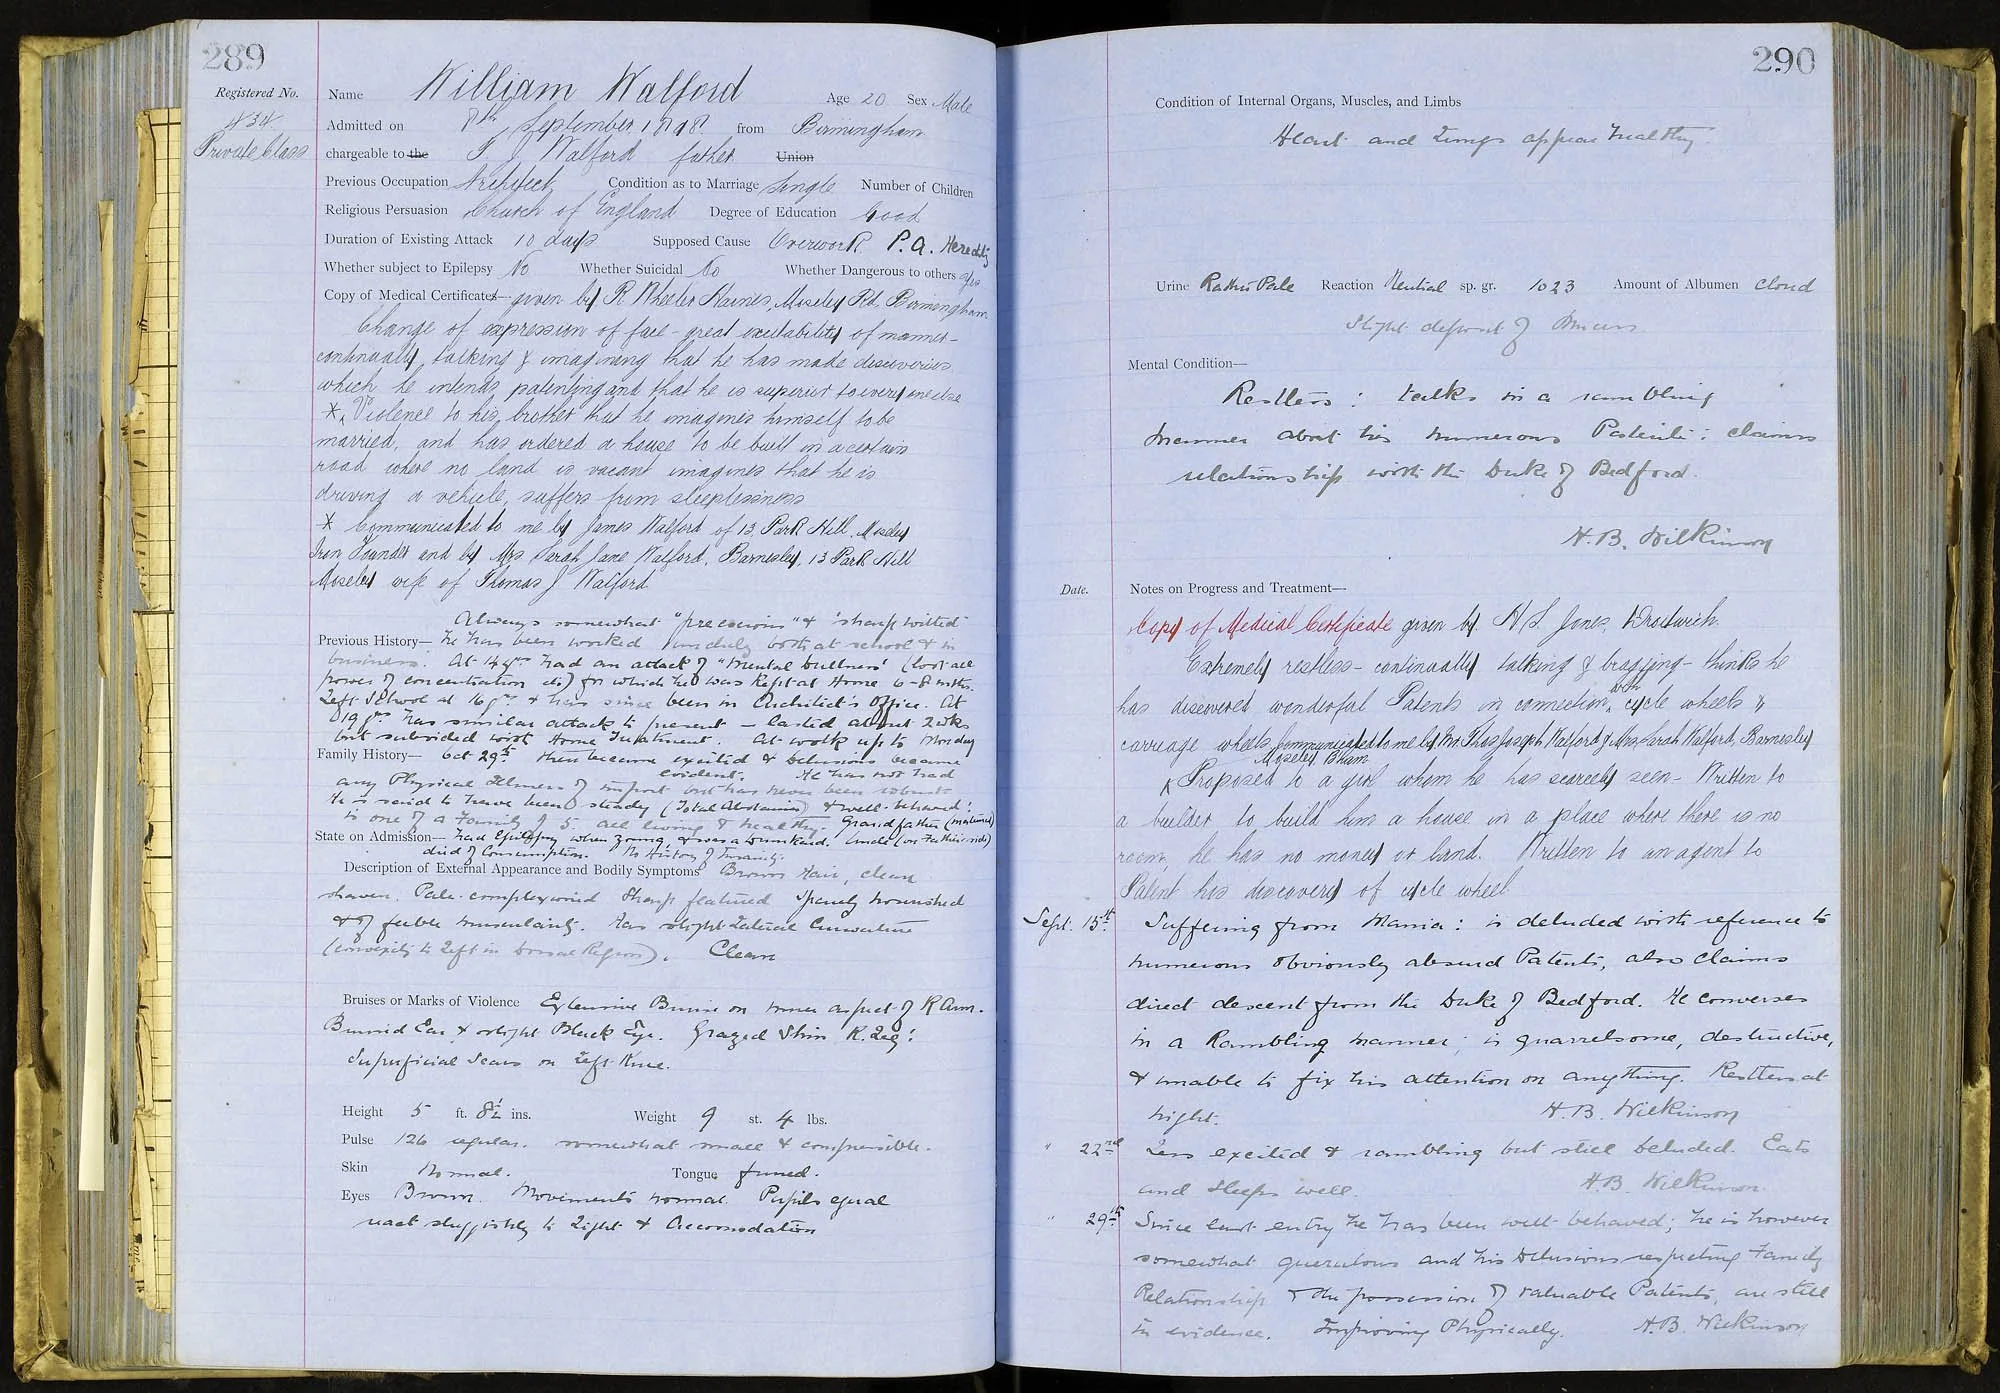 289
Registered No.
434
Private Class
Name William Walford Age 20 Sex Male
Admitted on 8th September 1898 from Birmingham
chargeable to the T J Walford father Union
Previous Occupation Architect Condition as to Marriage Single Number of Children
Religious Persuasion Church of England Degree of Education Good
Duration of Existing Attack 10 days Supposed Cause Overwork P.A. Heredity
Whether subject to Epilepsy No Whether Suicidal No Whether Dangerous to others Yes
Copy of Medical Certificate— given by R Wheeler Haines, Moseley Rd. Birmingham
Change of expression of face - great excitability of manner -
continually talking & imagining that he has made discoveries
which he intends patenting and that he is superior to every one else
* Violence to his brother that he imagines himself to be
married, and has ordered a house to be built in a certain
road where no land is vacant imagines that he is
driving a vehicle, suffers from sleeplessness
* Communicated to me by James Walford of 13 Park Hill, Moseley
Iron Founder and by Mrs Sarah Jane Walford, Barnesley, 13 Park Hill
Moseley wife of Thomas J Walford
Always somewhat "precocious" & "sharp witted"
Previous History— he has been worked unduly both at school & in
business. At 14 yrs had an attack of "Mental Dullness" (lost all
power of concentration etc) for which he was kept at Home 6-8 mths.
Left School at 16 yrs & has since been in Architect's Office. At
19 yrs has similar attack to present — lasted about 2 wks
but subsided with Home Treatment. At work up to Monday
Family History— Oct 29th then became excited & delusions became
evident. He has not had
any Physical Illness of import but has never been robust
He is said to have been steady (Total Abstainer) & well-behaved:
is one of a Family of 5. all living & healthy. Grandfather (maternal)
State on Admission— had Epilepsy when young, & was a drunkard. Uncle (on Father's side)
died of Consumption. No History of Insanity.
Description of External Appearance and Bodily Symptoms Brown Hair, clean
shaven. Pale complexioned Sharp featured Sparely nourished
& of feeble muscularity. Has slight Lateral Curvature
(convexity to Left in Dorsal Region). Clean
Bruises or Marks of Violence Extensive Bruise on inner aspect of R Arm.
Bruised Ear & slight Black Eye. Grazed Shin R. Leg:
Superficial Scars on Left Knee.
Height 5 ft. 8½ ins. Weight 9 st. 4 lbs.
Pulse 126 regular. somewhat small & compressible.
Skin Normal. Tongue furred.
Eyes Brown. Movements normal. Pupils equal
react sluggishly to Light & Accomodation
290
Condition of Internal Organs, Muscles, and Limbs
Heart and Lungs appear healthy.
Urine Rather Pale Reaction Neutral sp. gr. 1023 Amount of Albumen Cloud
Slight deposit of Mucus
Mental Condition—
Restless: talks in a rambling
manner about his numerous Patents: claims
relationship with the Duke of Bedford.
H. B. Wilkinson
Date. Notes on Progress and Treatment—
Copy of Medical Certificate given by H S Jones, Droitwich.
Extremely restless - continually talking & bragging - thinks he
has discovered wonderful Patents in connection with cycle wheels &
carriage wheels Communicated to me by Mr. Thos Joseph Walford & Mrs Sarah Walford, Barnesley
Moseley B'ham
Proposed to a girl whom he has scarcely seen - Written to
a builder to build him a house in a place where there is no
room, he has no money or land. Written to an agent to
Patent his discovery of cycle wheel
Sept. 15th Suffering from Mania: is deluded with reference to
numerous obviously absurd Patents, also claims
direct descent from the Duke of Bedford. He converses
in a Rambling manner; is quarrelsome, destructive,
& unable to fix his attention on anything. Restless at
night. H. B. Wilkinson
" 22nd Less excited & rambling but still deluded. Eats
and Sleeps well. H.B. Wilkinson
" 29th Since last entry he has been well-behaved; he is however
somewhat querulous and his Delusions respecting Family
Relationship & the possession of valuable Patents, are still
in evidence. Improving Physically. H.B. Wilkinson